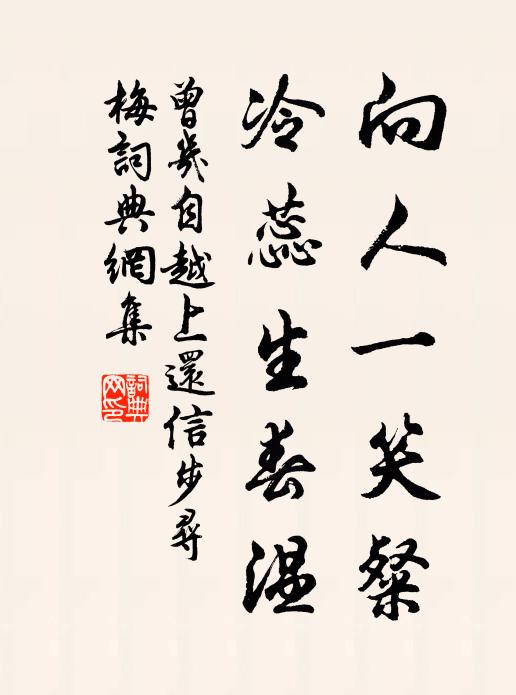 向人一笑粲
冷蕊生春溫
曾幾自越上還信步尋
梅詞典網集
詞典
网印